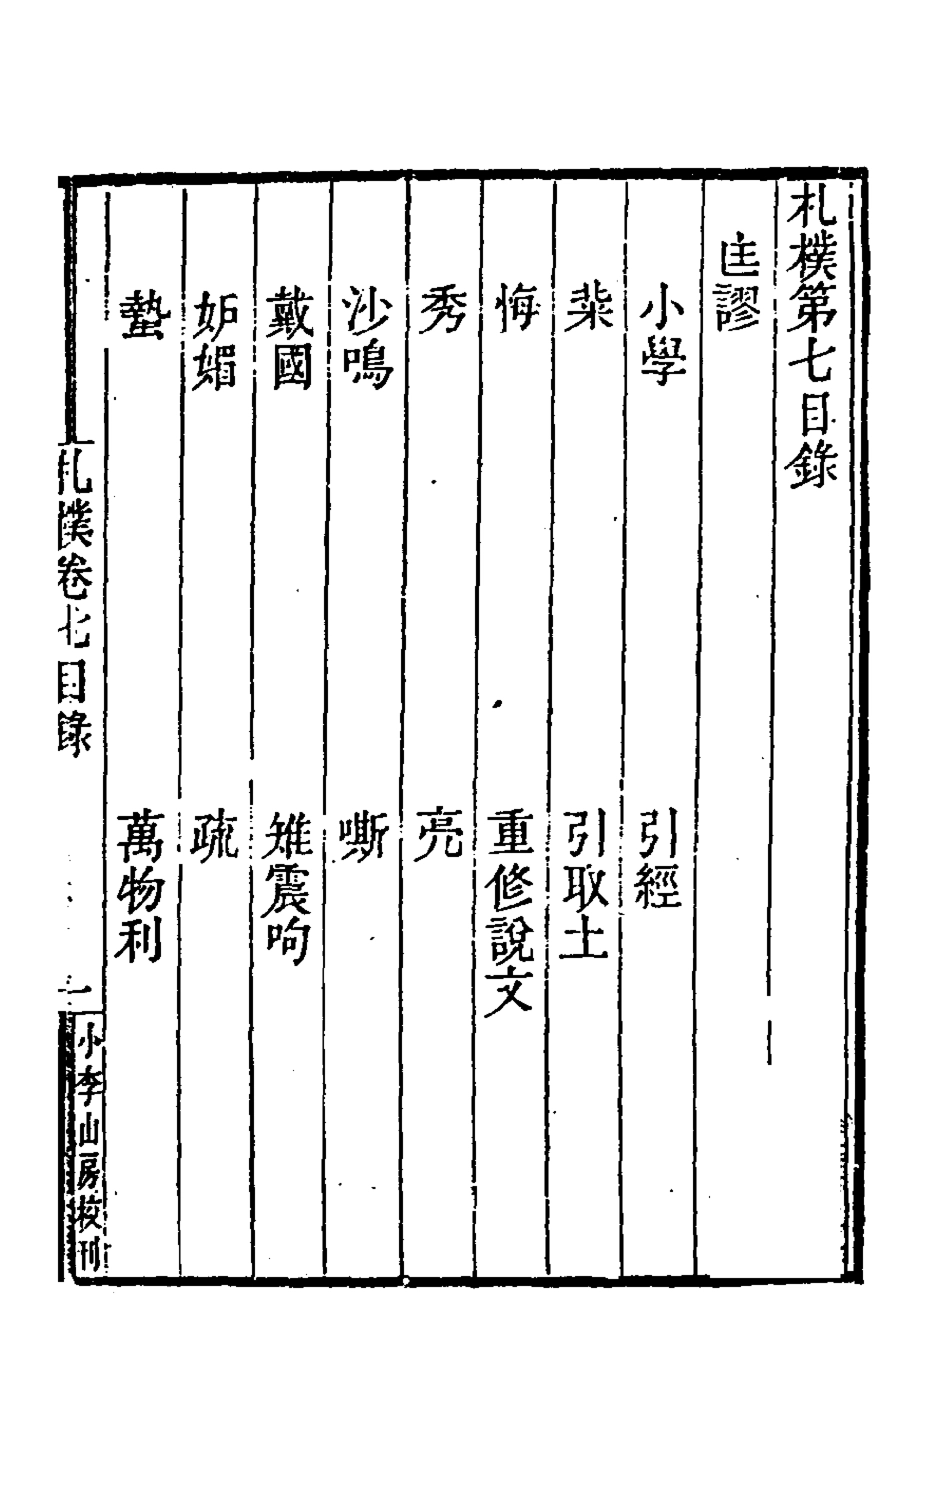 札樸第七目錄
匡謬
小學　引經
㭰　引取土
悔　重修說文
秀　亮
沙鳴　嘶
戴國　雉震呴
妬媢　疏
蟄　萬物利
札樸卷七目錄　一　小李山房校刊